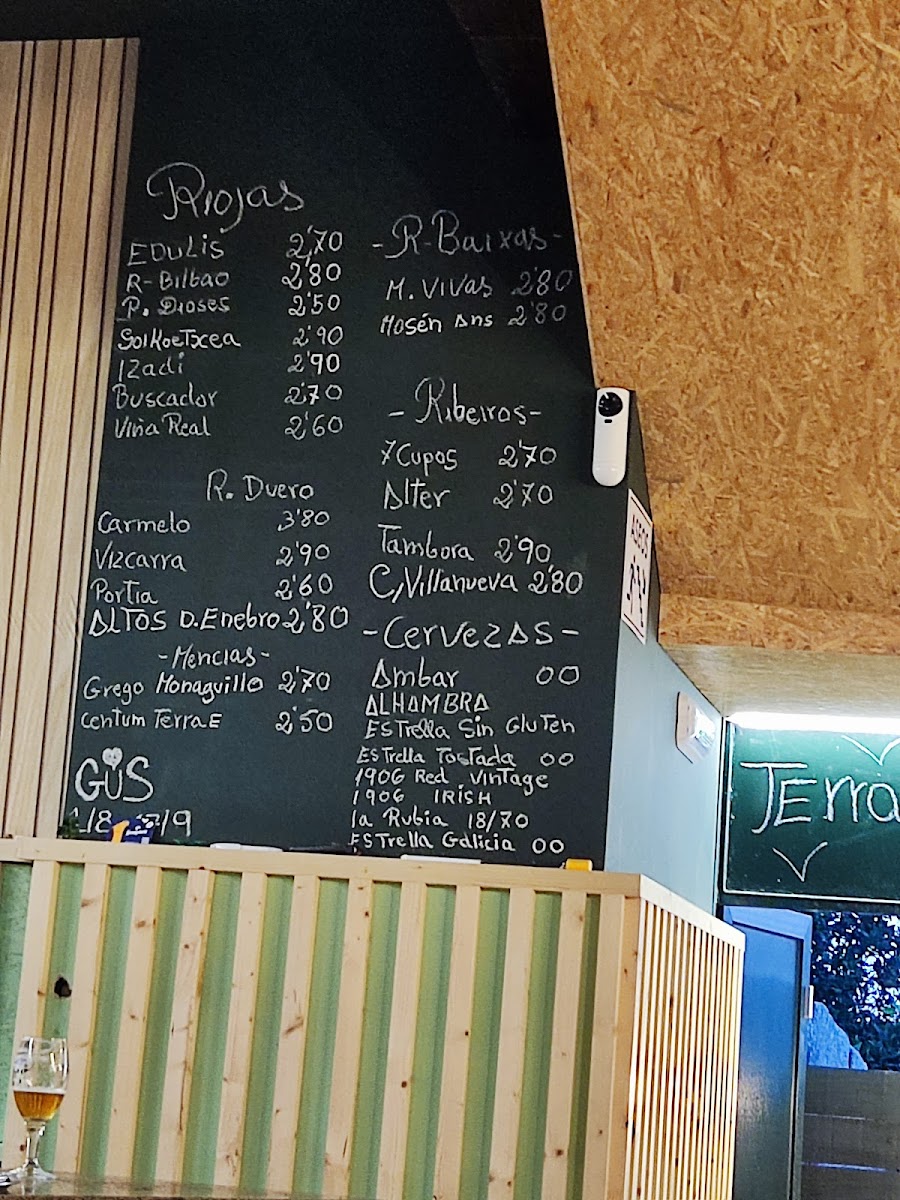 Riojas
EDULIS 2,70
R-Bilbao 2'80
P. Dioses 2'50
SoiKoeTxea 2'90
Izadi 2'90
Buscador 2'70
Viña Real 2'60
R. Duero
Carmelo 3'80
Vizcarra 2'90
Portia 2'60
ALTOS D.Enebro 2'80
-Mencias-
Grego Monaguillo 2'70
centum TerraE 2'50
GUS
-R-Baixas-
M. Vivas 2'80
Mosén Ans 2'80
-Ribeiros-
7 Cupos 2'70
Alter 2'70
Tambora 2'90
C,Villanueva 2'80
-CervezAs-
Ambar 00
ALHAMBRA
Estrella Sin Gluten
Estrella Tostada 00
1906 Red Vintage
1906 IRISH
la Rubia 18/70
Estrella Galicia 00
ASEOS
TErra